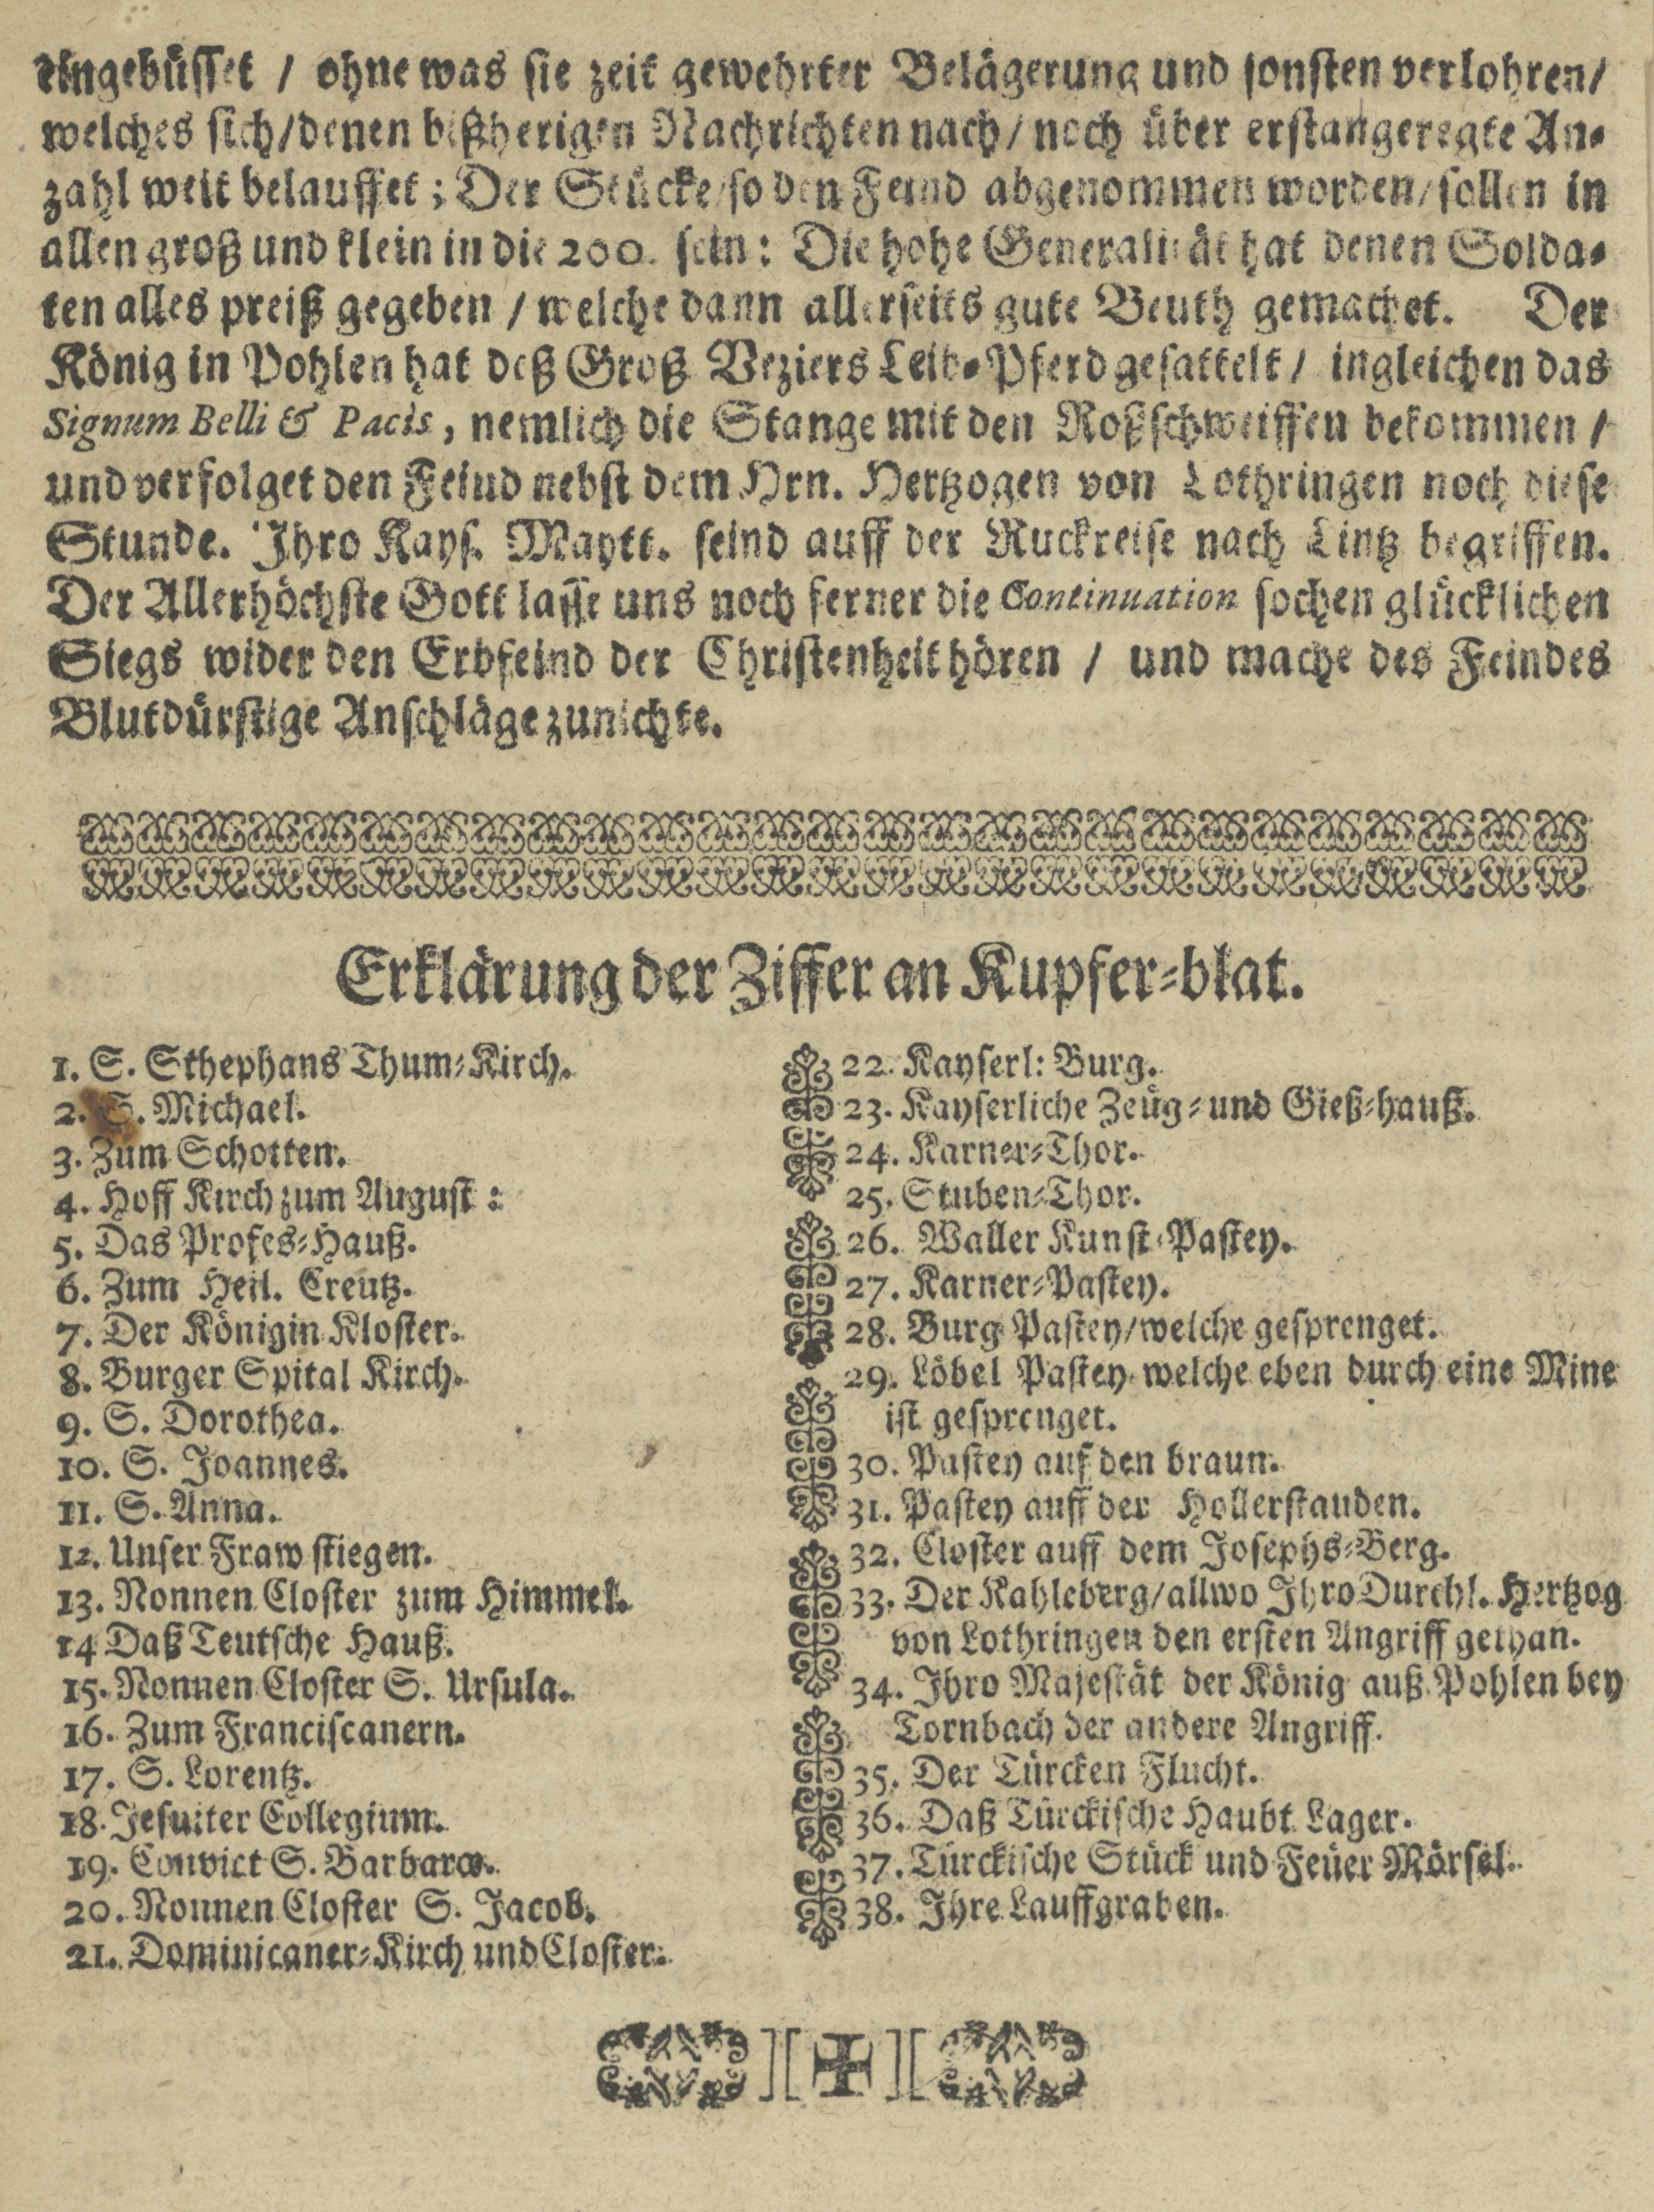 eingebüsset / ohne was sie zeit gewehrter Belägerung und sonsten verlohren/
welches sich/denen bißherigen Nachrichten nach/ noch über erstangeregte An-
zahl weit belauffet; Der Stücke/so den Feind abgenommen worden/sollen in
allen groß und klein in die 200. sein: Die hohe Generalität hat denen Solda-
ten alles preiß gegeben / welche dann allerseits gute Beuth gemachet. Der
König in Pohlen hat deß Groß Veziers Leib-Pferd gesattelt / ingleichen das
Signum Belli & Pacis, nemlich die Stange mit den Roßschweiffen bekommen /
und verfolget den Feind nebst dem Hrn. Hertzogen von Lothringen noch diese
Stunde. Ihro Kays. Maytt. seind auff der Ruckreise nach Lintz begriffen.
Der Allerhöchste Gott lasse uns noch ferner die Continuation sochen glücklichen
Siegs wider den Erbfeind der Christenheit hören / und mache des Feindes
Blutdürstige Anschläge zunichte.
Erklärung der Ziffer an Kupfer-blat.
1. S. Sthephans Thum-Kirch.
2. S. Michael.
3. Zum Schotten.
4. Hoff Kirch zum August:
5. Das Profes-Hauß.
6. Zum Heil. Creutz.
7. Der Königin Kloster.
8. Burger Spital Kirch.
9. S. Dorothea.
10. S. Joannes.
11. S. Anna.
12. Unser Fraw stiegen.
13. Nonnen Closter zum Himmel.
14 Daß Teutsche Hauß.
15. Nonnen Closter S. Ursula.
16. Zum Franciscanern.
17. S. Lorentz.
18. Jesuiter Collegium.
19. Convict S. Barbaræ.
20. Nonnen Closter S. Jacob.
21. Dominicaner-Kirch und Closter.
22. Kayserl: Burg.
23. Kayserliche Zeüg- und Gieß-hauß.
24. Karner-Thor.
25. Stuben-Thor.
26. Waller Kunst-Pastey.
27. Karner-Pastey.
28. Burg Pastey/welche gesprenget.
29. Löbel Pastey welche eben durch eine Mine
ist gesprenget.
30. Pastey auf den braun.
31. Pastey auff der Hollerstauden.
32. Closter auff dem Josephs-Berg.
33. Der Kahleberg/allwo Ihro Durchl. Hertzog
von Lothringen den ersten Angriff gethan.
34. Ihro Majestät der König auß Pohlen bey
Tornbach der andere Angriff.
35. Der Türcken Flucht.
36. Daß Türckische Haubt Lager.
37. Türckische Stück und Feüer Mörsel.
38. Ihre Lauffgraben.